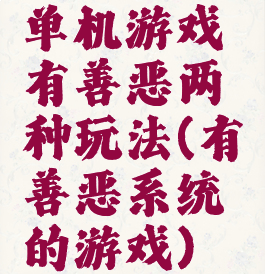 单机游戏
有善恶两
种玩法(有
善恶系统
的游戏)